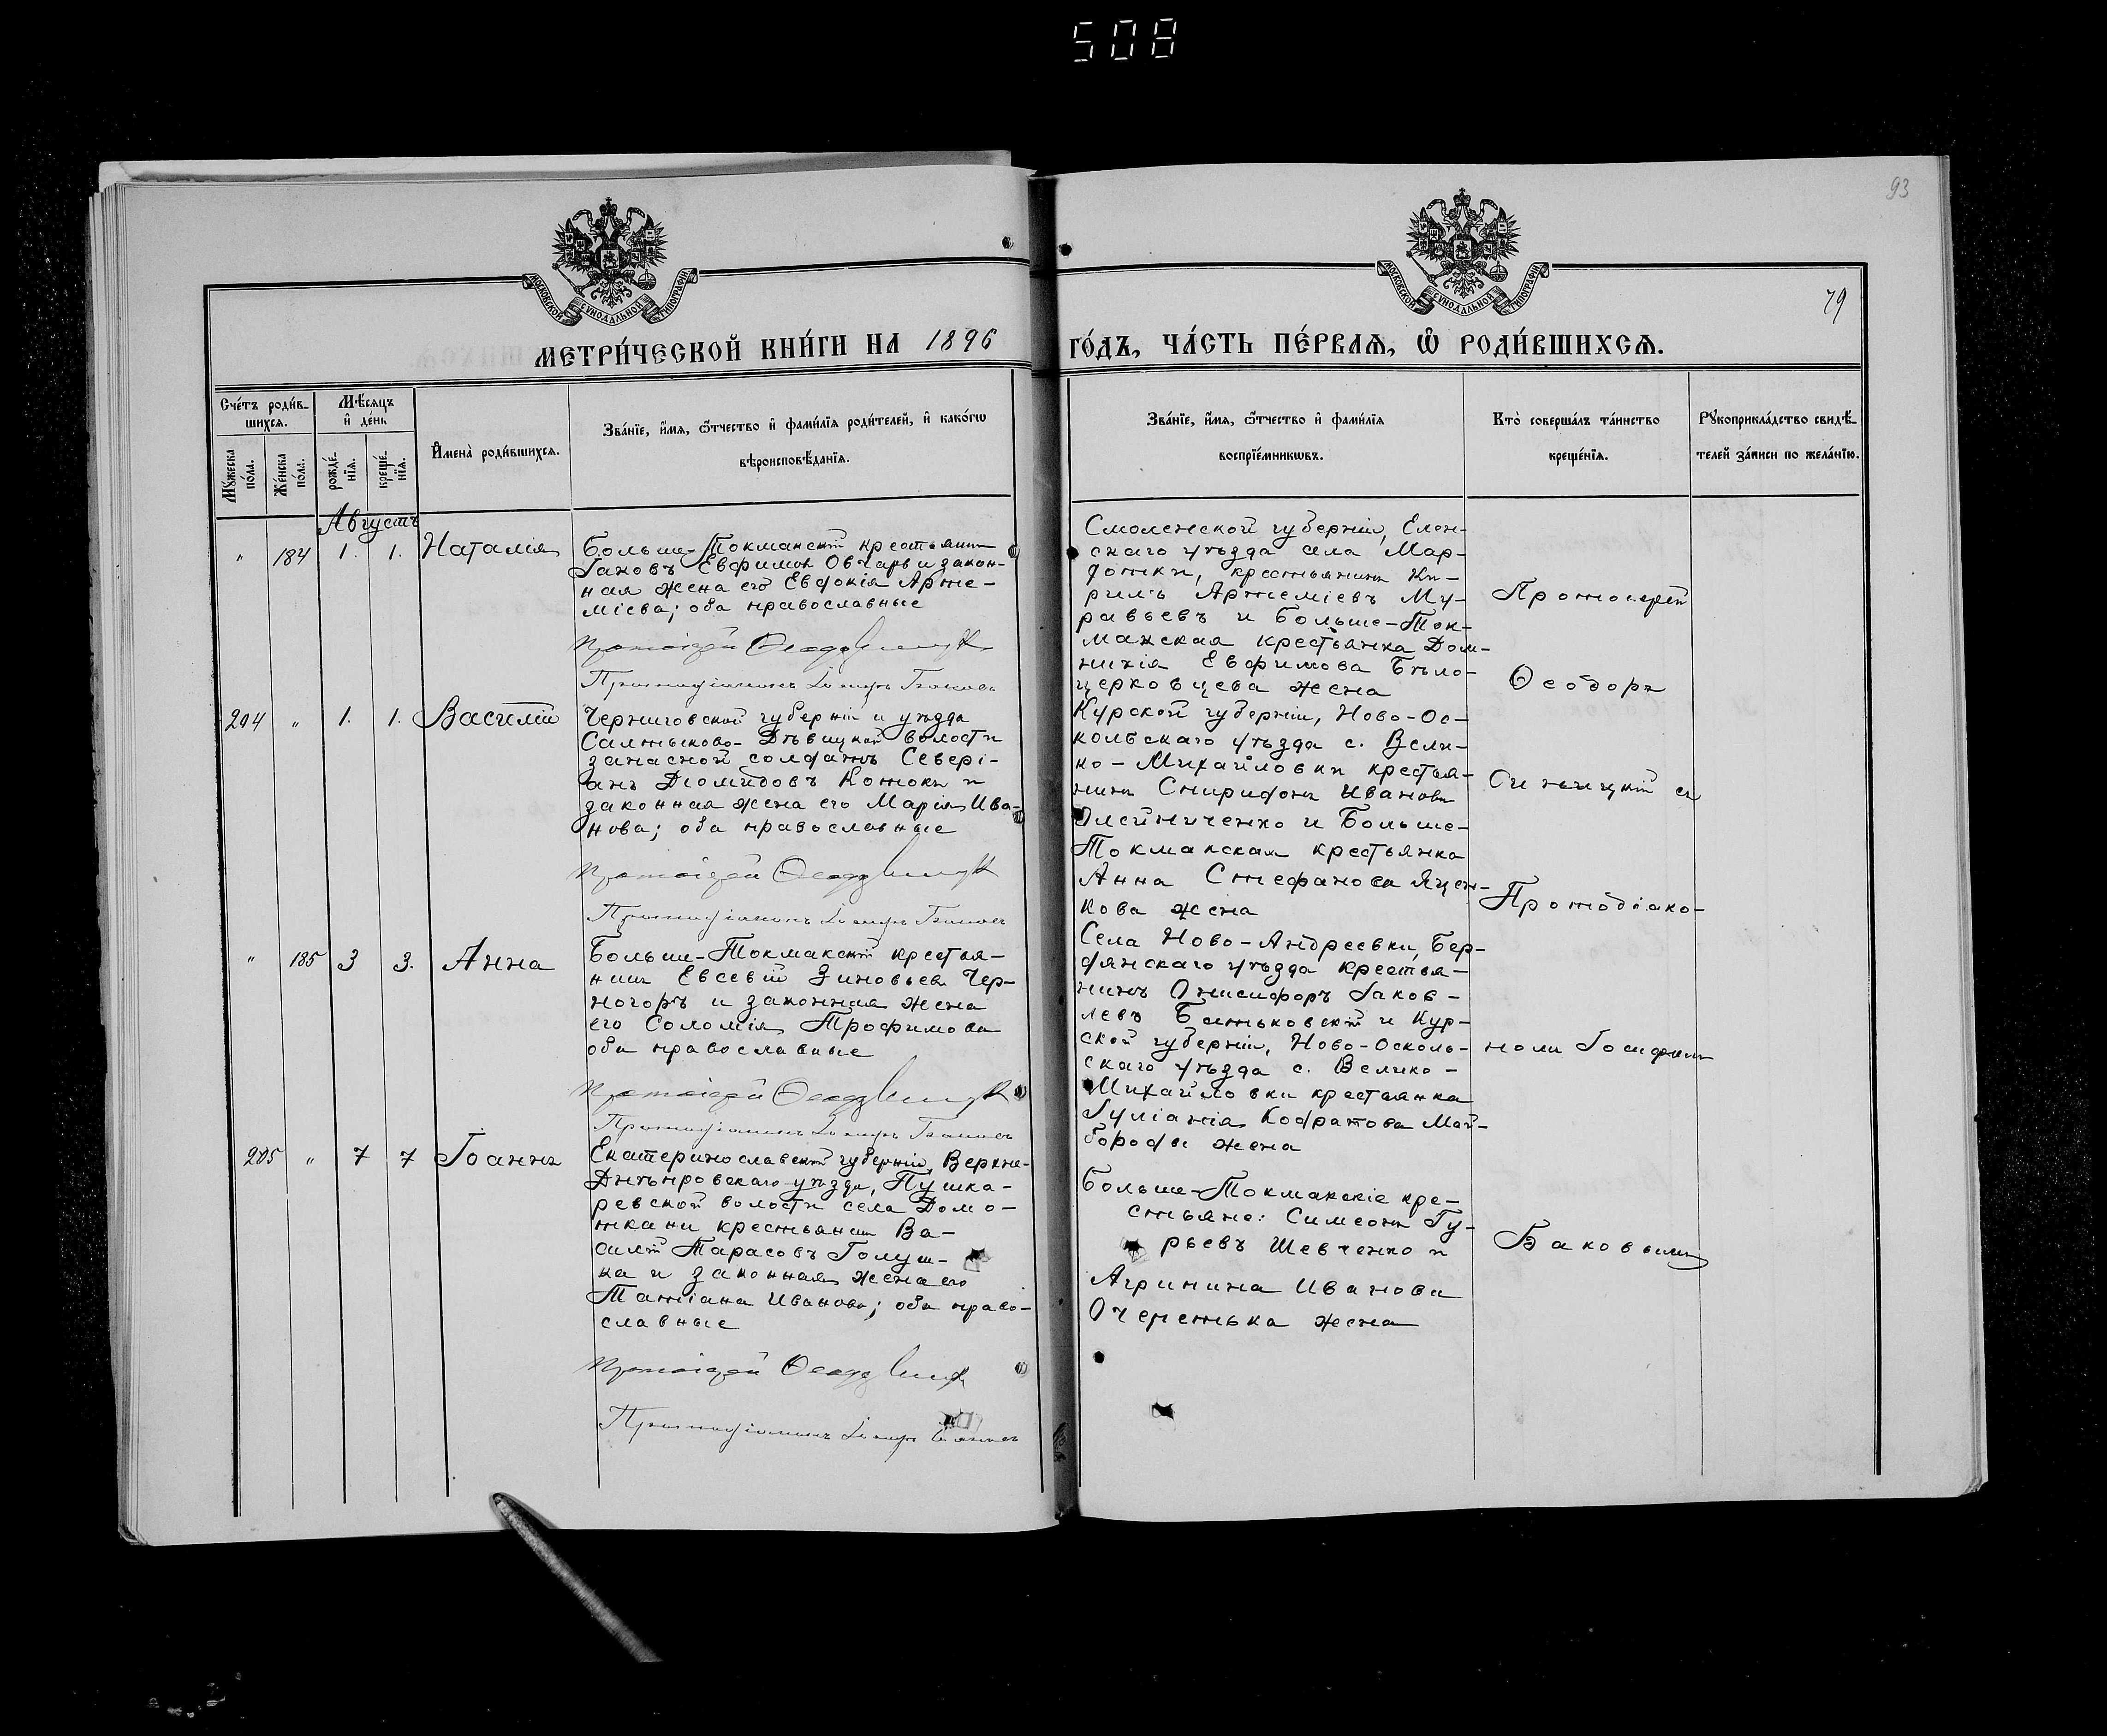 508
93
79
МОСКОВСКОЙ СѴНОДАЛЬНОЙ ТИПОГРАФІИ
МОСКОВСКОЙ СѴНОДАЛЬНОЙ ТИПОГРАФІИ
МЕТРИ́ЧЕСКОЙ КНИ́ГИ НА 1896
ГО́ДЪ, ЧА́СТЬ ПЕ́РВАѦ, Ѽ РОДИ́ВШИХСѦ.
Сче́тъ роди́в-
шихсѧ.
Мꙋ́жеска
по́ла.
Же́нска
по́ла.
Мѣ́сѧцъ
и҆ де́нь
рожде́-
нїѧ.
креще́-
нїѧ.
И҆мена̀ роди́вшихсѧ.
Зва́нїе, и҆́мѧ, ѻ҆́тчество и҆ фами́лїѧ роди́телей, и҆ како́гѡ
вѣроисповѣ́данїѧ.
Зва́нїе, и҆́мѧ, ѻ҆́тчество и҆ фами́лїѧ
воспрїе́мникѡвъ.
Кто̀ соверша́лъ та́инство
креще́нїѧ.
Рꙋкоприкла́дство свидѣ́-
телей за́писи по жела́нїю.
Августъ
" 184 1. 1. Наталія
Больше-Токмакскій крестьянинъ
Іаковъ Евфимовъ Овчарь и закон-
ная жена его Евдокія Арте-
міева; оба православные
Протоіерей Ѳеодоръ
Протодіаконъ
Смоленской губерніи, Елен-
скаго уѣзда села Мар-
дотки, крестьянинъ Ки-
рилъ Артеміевъ Му-
равьевъ и Больше-Ток-
макская крестьянка Дом-
никія Евфимова Бѣло-
церковцева жена
204 " 1. 1. Василій
Черниговской губерніи и уѣзда
Салтыково-Дѣвицкой волости
запасной солдатъ Севері-
анъ Діомидовъ Котокъ и
законная жена его Марія Ива-
нова; оба православные
Протоіерей Ѳеодоръ
Протодіаконъ
Курской губерніи, Ново-Ос-
кольскаго уѣзда с. Вели-
ко-Михайловки крестья-
нинъ Спиридонъ Ивановъ
Олейниченко и Больше-
Токмакская крестьянка
Анна Стефанова Яцен-
кова жена
" 185 3 3. Анна
Больше-Токмакскій крестья-
нинъ Евсевій Зиновьевъ Чер-
ногоръ и законная жена
его Соломія Трофимова
оба православные
Протоіерей Ѳеодоръ
Протодіаконъ
Села Ново-Андреевки, Бер-
дянскаго уѣзда крестья-
нинъ Онисифоръ Іаков-
левъ Батьковскій и Кур-
ской губерніи, Ново-Осколь-
скаго уѣзда с. Велико-
Михайловки крестьянка
Іуліанія Кодратова Май-
бороды жена
205 " 7 7 Іоаннъ
Екатеринославской губерніи, Верхне-
Днѣпровскаго уѣзда, Пушка-
ревской волости села Домо-
ткани крестьянинъ Ва-
силій Тарасовъ Голуш-
ка и законная жена его
Татіана Иванова; оба право-
славные
Протоіерей Ѳеодоръ
Протодіаконъ
Больше-Токмакскіе кре-
стьяне: Симеонъ Гу-
рьевъ Шевченко и
Агрипина Иванова
Очепетька жена
Протоіерей
Ѳеодоръ
Синицкій съ
Протодіако-
номъ Іосифомъ
Баковымъ